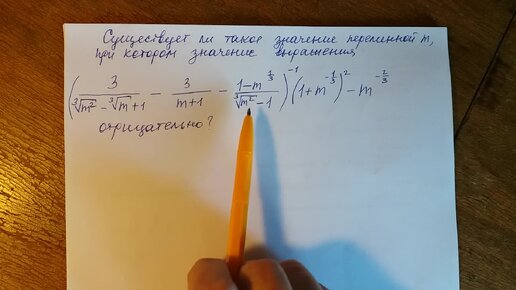 Существует ли такое значение переменной m,
при котором значение выражения
(3/(∛m² − ∛m + 1) − 3/(m+1) − (1−m^(1/3))/(∛m² − 1))^(−1) (1+m^(−1/3))² − m^(−2/3)
отрицательно?